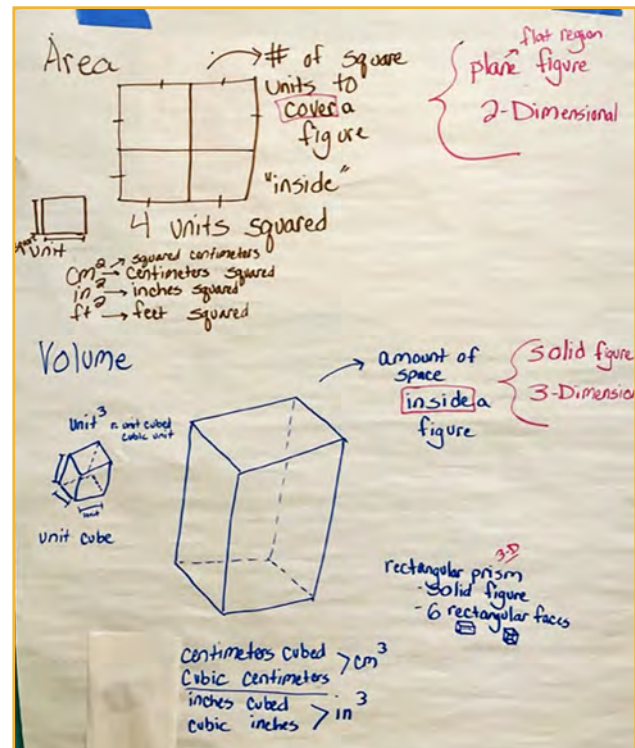 Area
# of square
units to
cover a
figure
"inside"
flat region
plane figure
2-Dimensional
4 units squared
unit
cm² → squared centimeters
→ centimeters squared
in² → inches squared
ft² → feet squared
Volume
amount of
space
inside a
figure
solid figure
3-Dimension
Unit³
unit cubed
cubic unit
unit
unit cube
3-D
rectangular prism
- Solid figure
- 6 rectangular faces
centimeters cubed
cubic centimeters > cm³
inches cubed
cubic inches > in³